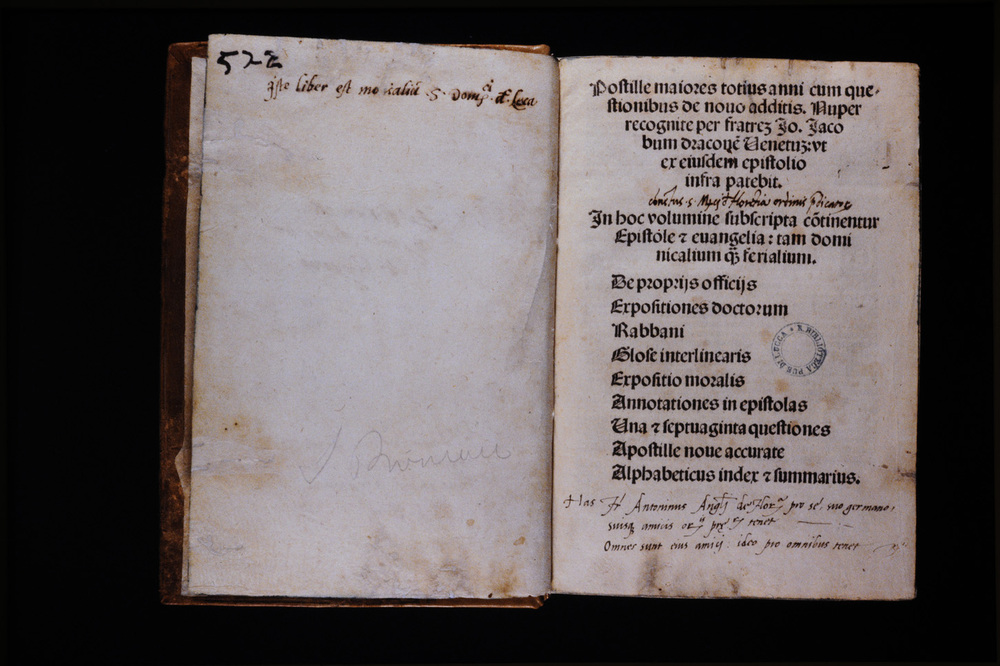 522
iste liber est monialiū S. Domci de Luca
Postille maiores totius anni cum que-
stionibus de nouo additis. Nuper
recognite per fratreꝫ Jo. Jaco
bum dracone Venetuꝫ: vt
ex eiusdem epistolio
infra patebit.
In hoc volumine subscripta cōtinentur
Epistole ⁊ euangelia: tam domi
nicalium q̄ȝ ferialium.
De proprijs officijs
Expositiones doctorum
Rabbani
Glose interlinearis
Expositio moralis
Annotationes in epistolas
Una ⁊ septuaginta questiones
Apostille noue accurate
Alphabeticus index ⁊ summarius.
R. BIBLIOTECA PUB. DI LUCCA
Has Antoninus de pro se, suo germano,
suisq amicis tenet
Omnes sunt eius amici ideo pro omnibus tenet